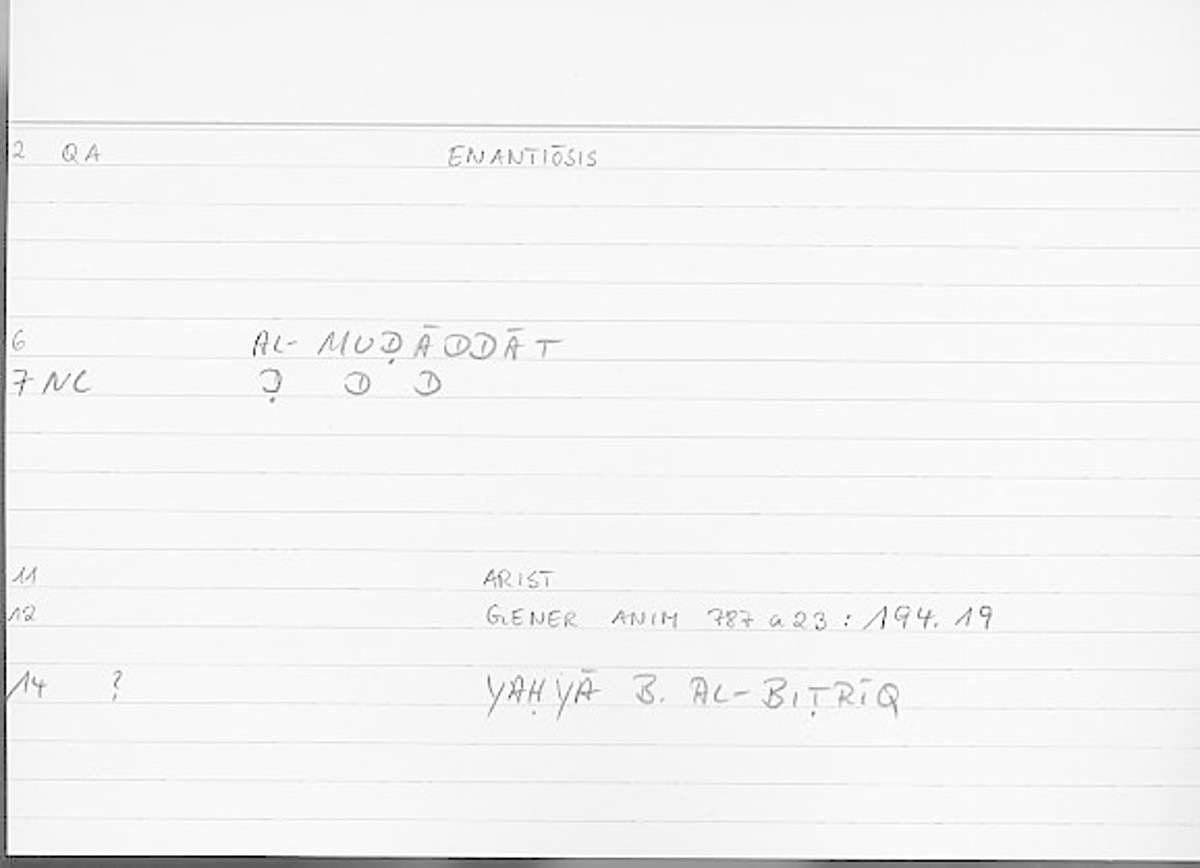 2 QA ENANTIŌSIS
6 AL- MUḌĀDDĀT
7 NC Ḍ D D
11 ARIST
12 GENER ANIM 787 a 23 : 194. 19
14 ? YAḤYĀ B. AL-BIṬRĪQ